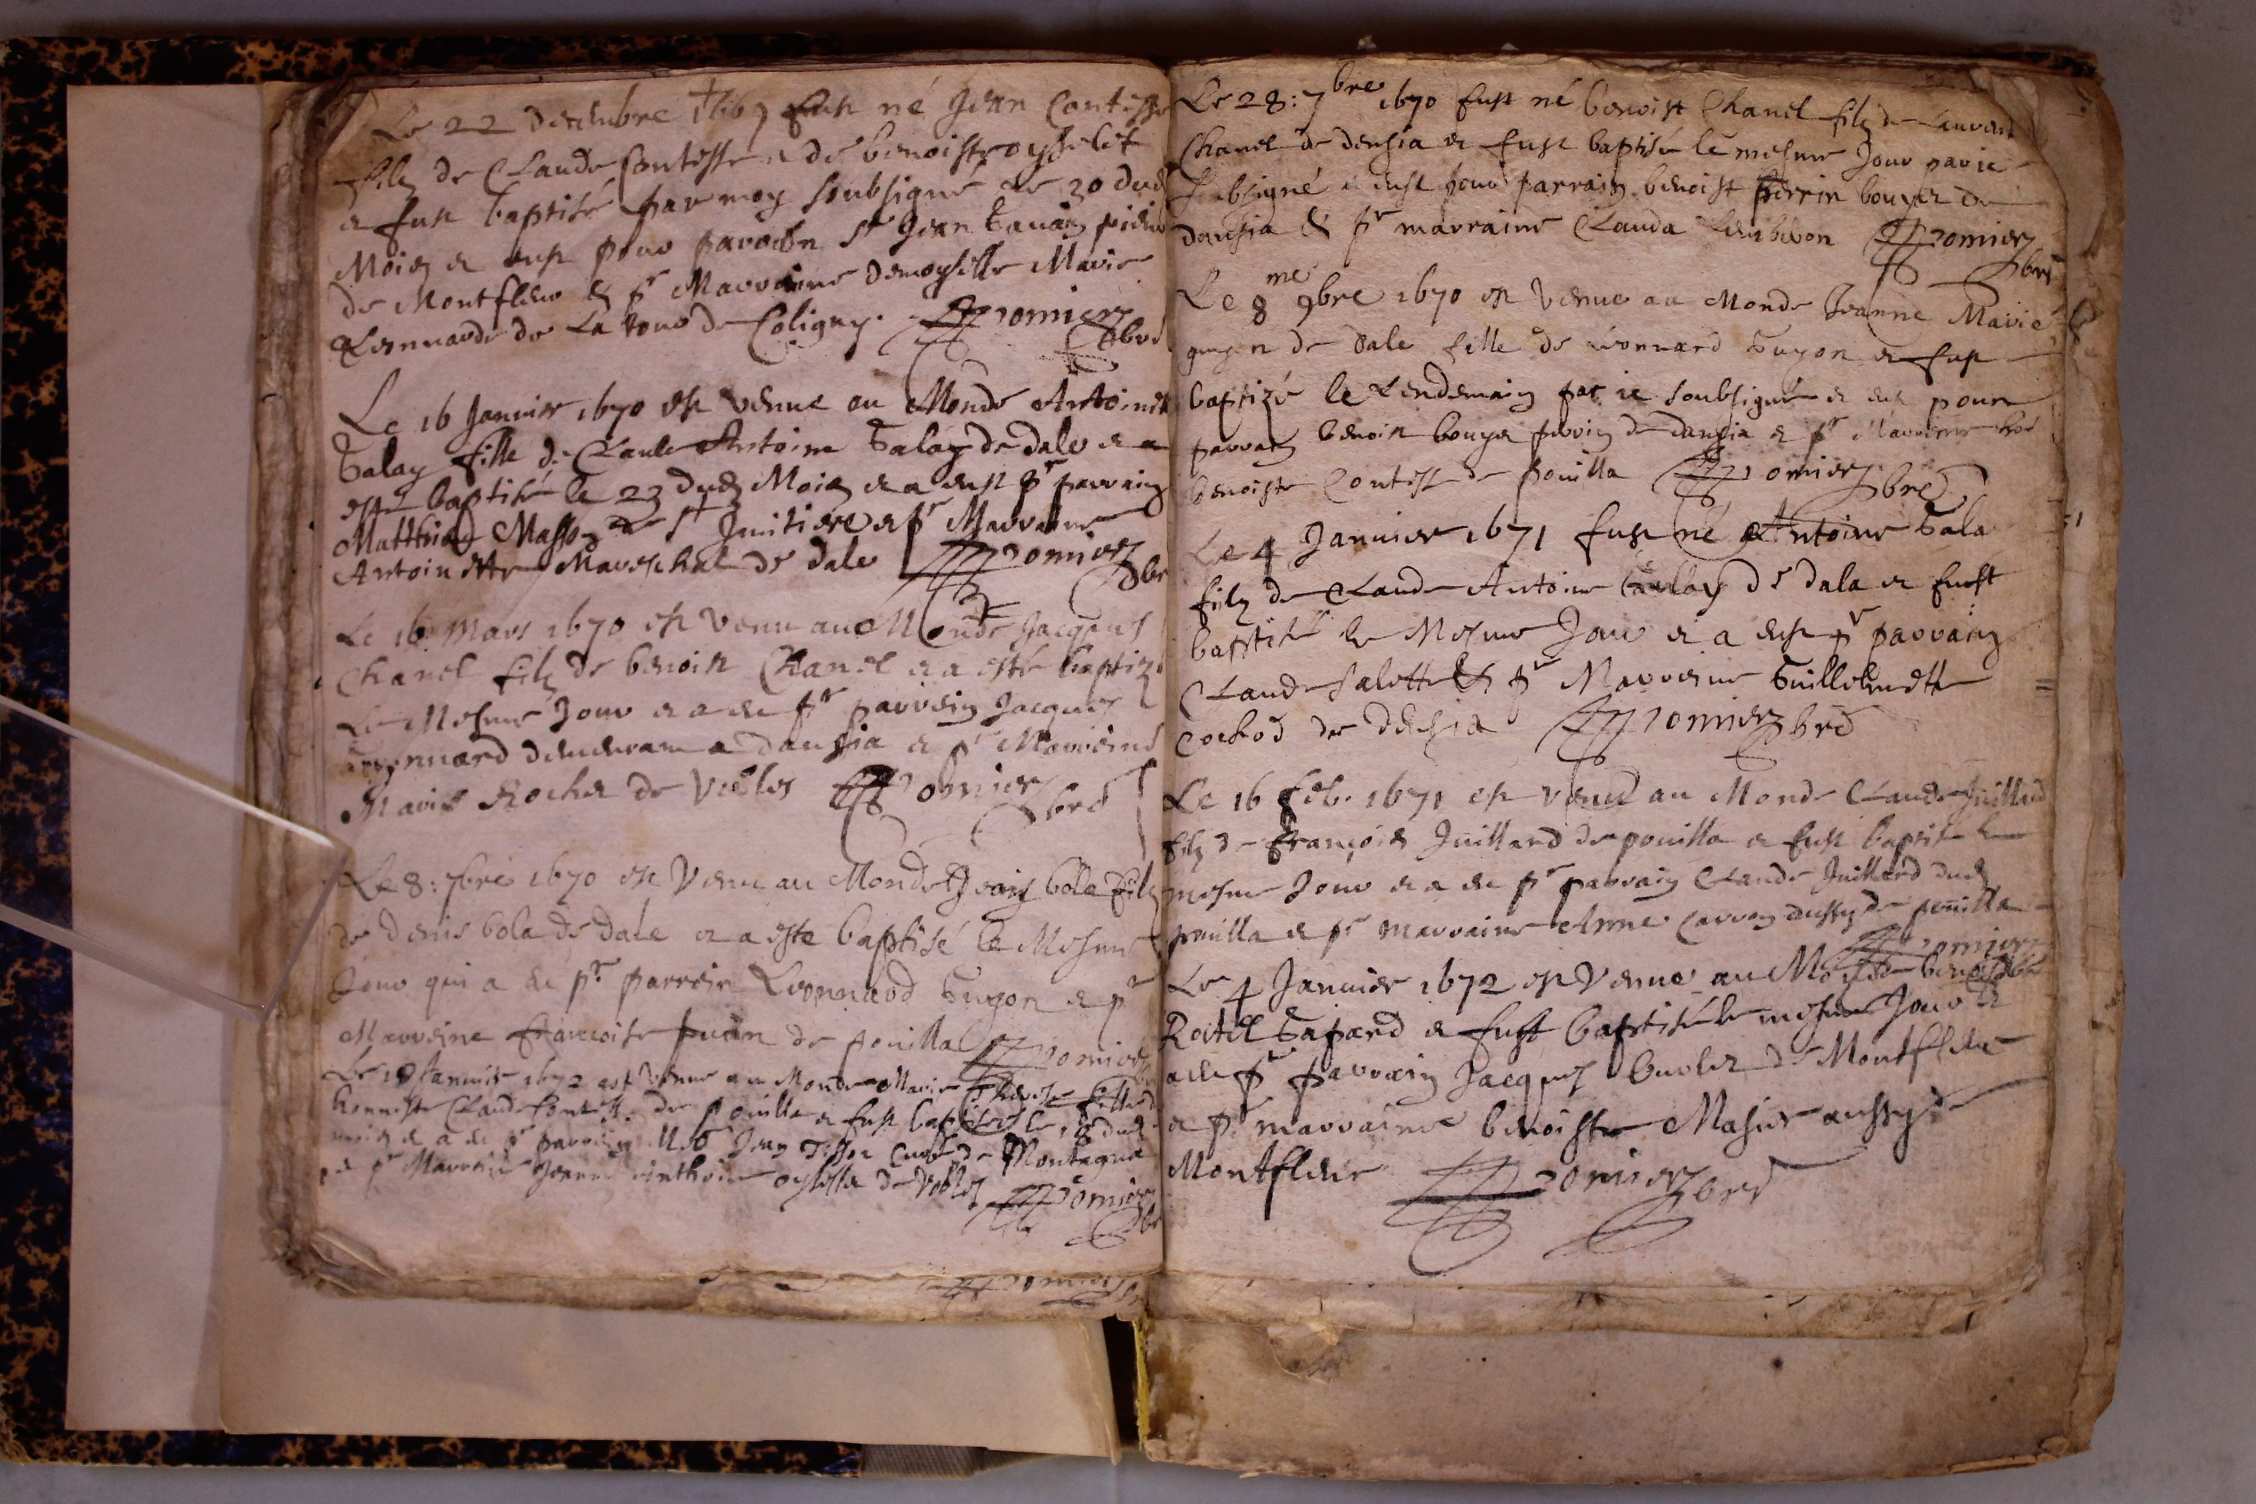 Le 22 decembre 1669 fust né Jean Contesse
filz de Claude Contesse e de benoiste oyselet
e fust baptisé par moy soubsigné le 30 dud
Mois e eust pour parrain Sr Jean
de Montfleur & pr Marraine demoyselle Marie
Leonnarde de La tour de Coligny. romier
pbre
Le 16 Januier 1670 est venue au Monde Antoinette
Galay fille de Claude Antoine Galay de dale e a
esté baptisé le 23 dud Mois e a eust pr parrain
Matthieu Masson de St Jmitiere e pr Marraine
Antoinette Mareschal de dale romier
pbre
Le 16 Mars 1670 est venu au Monde Jacques
Chanel filz de benoist Chanel e a esté baptizé
Le Mesme Jour e a eu pr parrein Jacques
demeurant a dansia e pr Marreine
Marie Rocher de Vobles romier
pbre
Le 8: 7bre 1670 est Venu au Monde Jean bola filz
de denis bola de dale e a este baptisé le Mesme
Jour qui a eu pr. parrein Leonnard Guyon e pr
Marreine francoise de pouilla romier
Le 18 Januier 1672 est venue au Monde Marie Therese fille d
honneste Claude Contesse de pouilla e fust baptisée le 18 dud
mois e a eu pr parrein Mre Jean Tissot Curé de Montagna
e pr Marreine Jeanne Anthoine oyselet de Vobles romier
pbre
romier
Le 28: 7bre 1670 fust né benoist Chanel filz de Laurent
Chanel de densia e fust baptisé le mesme Jour par je
soubsigné e eust pour parrain benoist perrin bouyer de
dansia & pr marraine Clauda romier
pbre
Le 8me 9bre 1670 est Venue au Monde Jeanne Marie
guyon de dale fille de leonnard Guyon e fust
baptizé le Lendemain par je soubsigné e eut pour
parrain benoist bouyer perrin de dansia e pr Marreine
benoiste Contesse de pouilla romier pbre
Le 4 Januier 1671 fust né Antoine Gala
filz de Claude Antoine Galay de dala e fust
baptisé le Mesme Jour e a eust pr parrain
Claude Salotte & pr Marreine Guillemette
Cochod de densia romier pbre
Le 16 feb. 1671 est venu au Monde Claude Juillard
filz de françois Juillard de pouilla e fust baptisé le
mesme Jour e a eu pr parrain Claude Juillard dud
pouilla e pr marraine Anne aussy de pouilla
romier
Le 4 Januier 1672 est Venue au Monde
Gapard e fust baptisé le mesme Jour e
a eu pr parrain Jacques de Montfleur
e pr marraine benoiste Masuer aussy de
Montfleur romier pbre